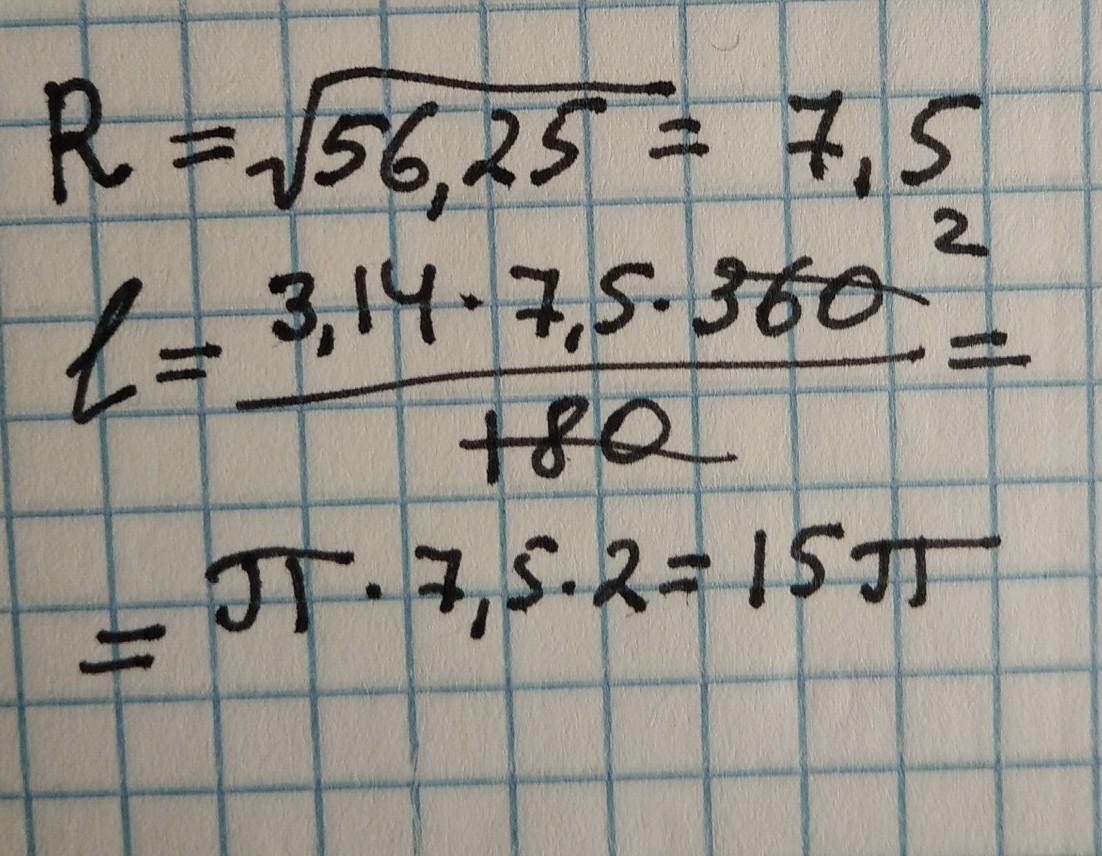 R = √56,25 = 7,5
l = (3,14 · 7,5 · 360 2) / 180 =
= π · 7,5 · 2 = 15π